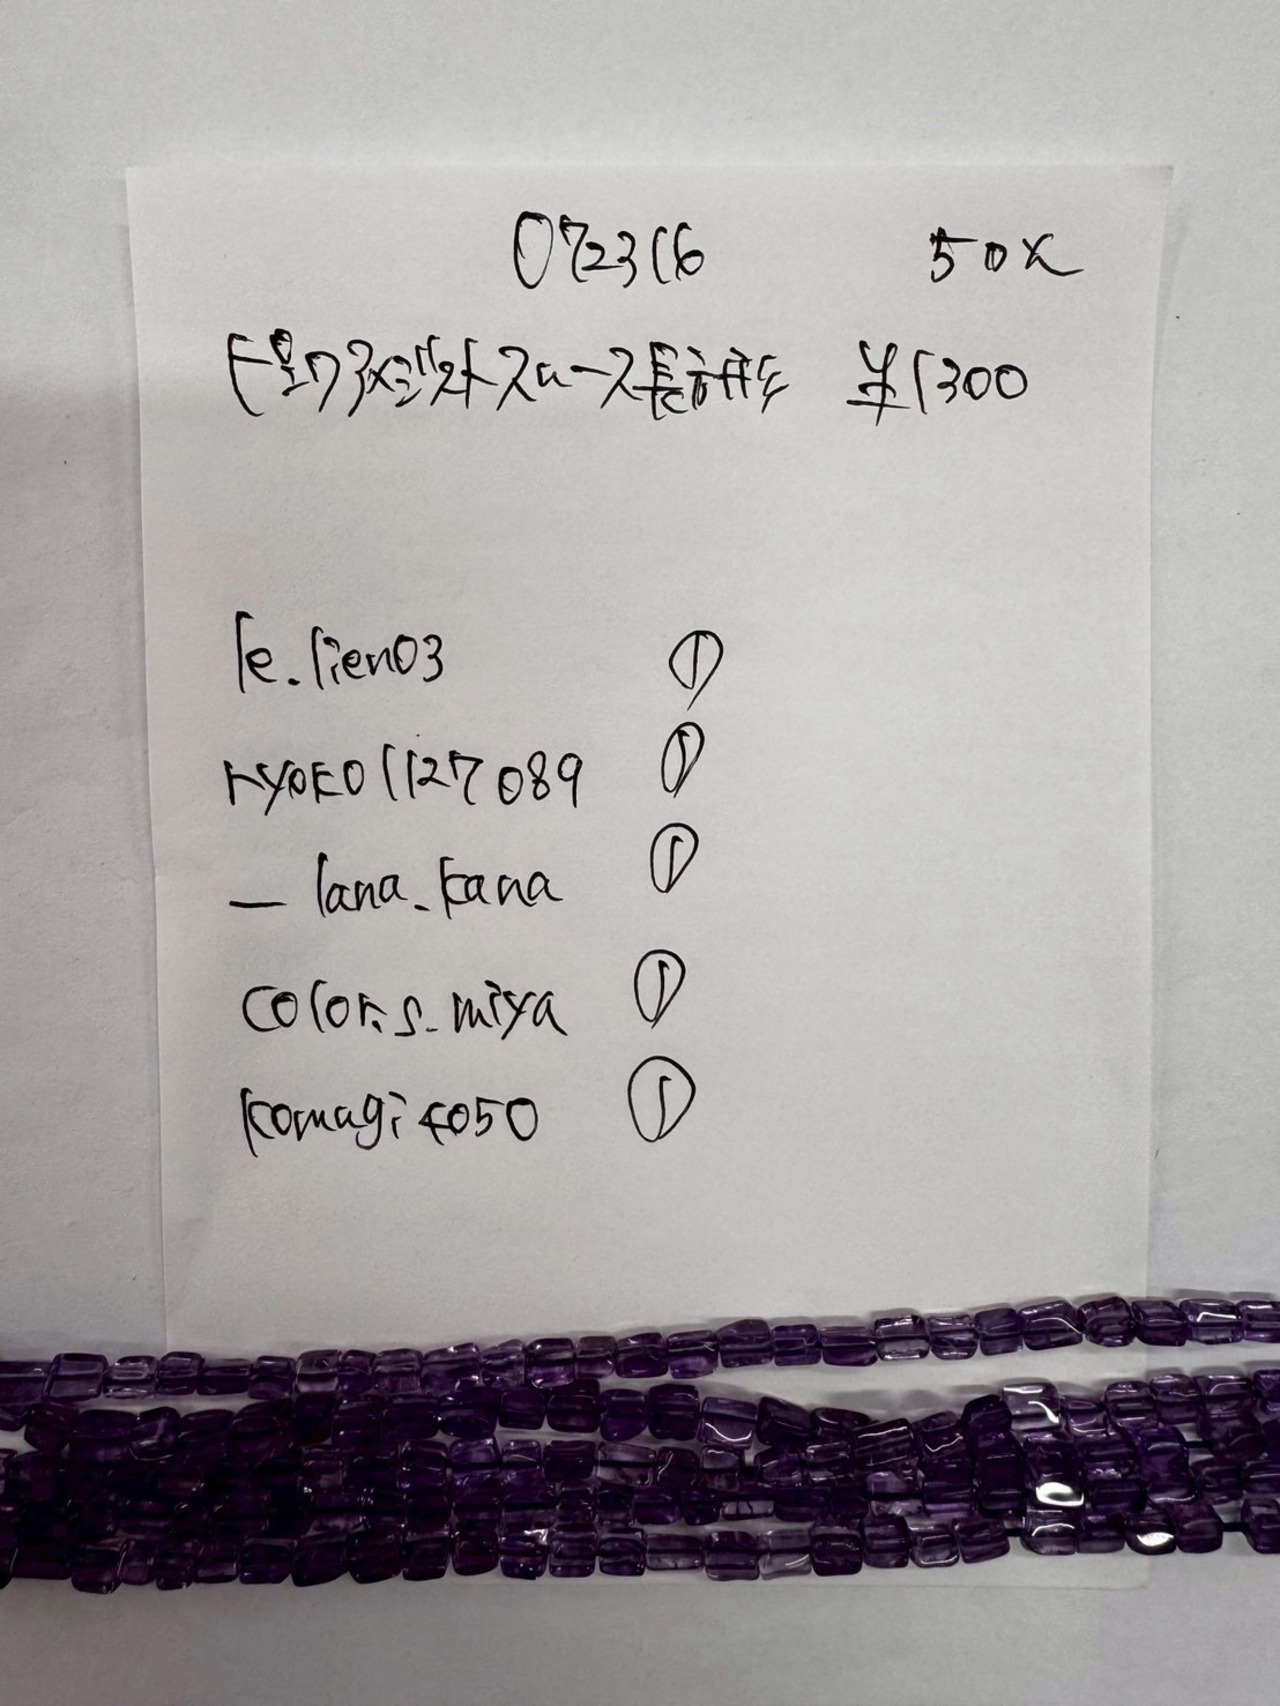 072316 50x
ピンクアメジストスムース長方形 ¥1300
le.lien03 ①
ryoko1127089 ①
_lana_kana ①
color.s_miya ①
komagi4050 ①